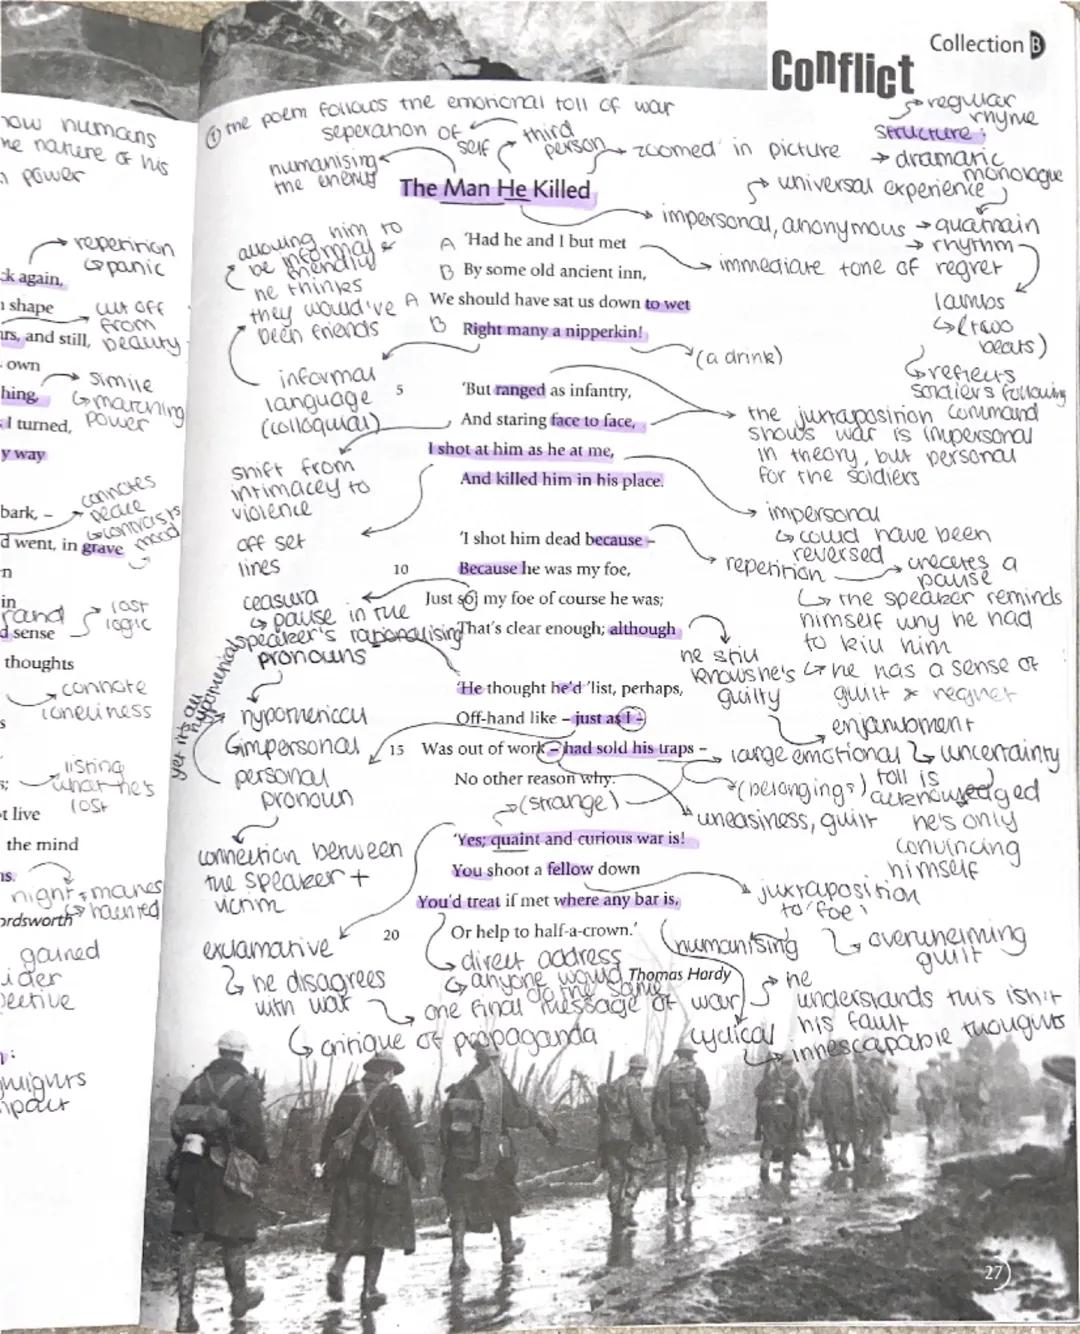 Collection B
Conflict
① the poem follows the emotional toll of war
seperation of self
third person
zoomed in picture
humanising the enemy
regular rhyme
structure:
dramatic monologue
universal experience
The Man He Killed
impersonal, anonymous
quatrain
rhythm
allowing him to
be informal &
friendly
he thinks
they would've
been friends
A 'Had he and I but met
B By some old ancient inn,
A We should have sat us down to wet
B Right many a nipperkin!
immediate tone of regret
iambs
(two beats)
reflects
soldiers following
command
(a drink)
informal
language
(colloquial)
5 'But ranged as infantry,
And staring face to face,
I shot at him as he at me,
And killed him in his place.
the juxtaposition
shows war is impersonal
in theory, but personal
for the soldiers
shift from
intimacey to
violence
off set
lines
impersonal
could have been
reversed
'I shot him dead because –
10 Because he was my foe,
Just so: my foe of course he was;
That's clear enough; although
repetition
creates a
pause
the speaker reminds
himself why he had
to kill him
ceasura
pause in the
speaker's rationalising
pronouns
he still
knows he's
guilty
he has a sense of
guilt & regret
'He thought he'd 'list, perhaps,
Off-hand like – just as I –
15 Was out of work – had sold his traps –
No other reason why.
hypothetical
impersonal
personal
pronoun
yet it's all
hypothetical
enjambment
uncertainty
large emotional
toll is
acknowledged
(belongings)
(strange)
uneasiness, guilt
he's only
convincing
himself
connection between
the speaker +
victim
'Yes; quaint and curious war is!
You shoot a fellow down
You'd treat if met where any bar is,
20 Or help to half-a-crown.'
Thomas Hardy
juxtaposition
to 'foe'
overwhelming
guilt
humanising
exclamative
he disagrees
with war
direct address
anyone would
do the same
one final message of war
critique of propaganda
cyclical
he
understands this isn't
his fault
innescapable thoughts
27
how humans
the nature of his
power
repetition
panic
ck again,
shape
cut off
from
beauty
urs, and still,
own
simile
marching
power
hing,
I turned,
y way
connotes
peace
contrasts
mood
bark, –
d went, in grave
n
in
d sense
lost
logic
thoughts
connote
loneliness
listing
what he's
lost
t live
the mind
night + manes
haunted
ordsworth
gained
ider
pective